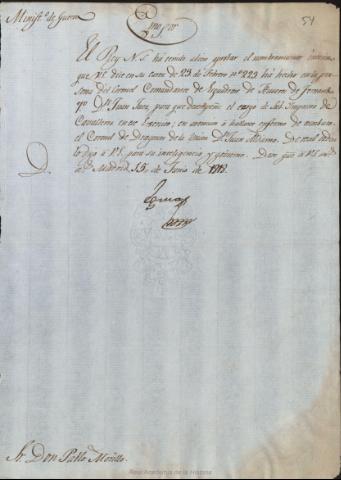 Minist.º de Guerra
Exmo Sor
54
El Rey N. S. ha tenido á bien aprobar el nombramiento interino
que V.E. dice en su carta de 23 de Febrero nº 223 ha hecho en la per
sona del Coronel Comandante de Esquadron de Husares de Fernando
7º Dn Juan para que desempeñe el cargo de Sub Inspector de
Caballeria en ese Exercito, en atencion á hallarse enfermo de
el Coronel de Dragones de la Union Dn Juan De real orden
lo digo á V.E. para su inteligencia y gobierno. Dios gue á V.E. ms
as Madrid 15 de Junio de 1818.
Eguia
Sr. Don Pablo Morillo.
Real Academia de la Historia